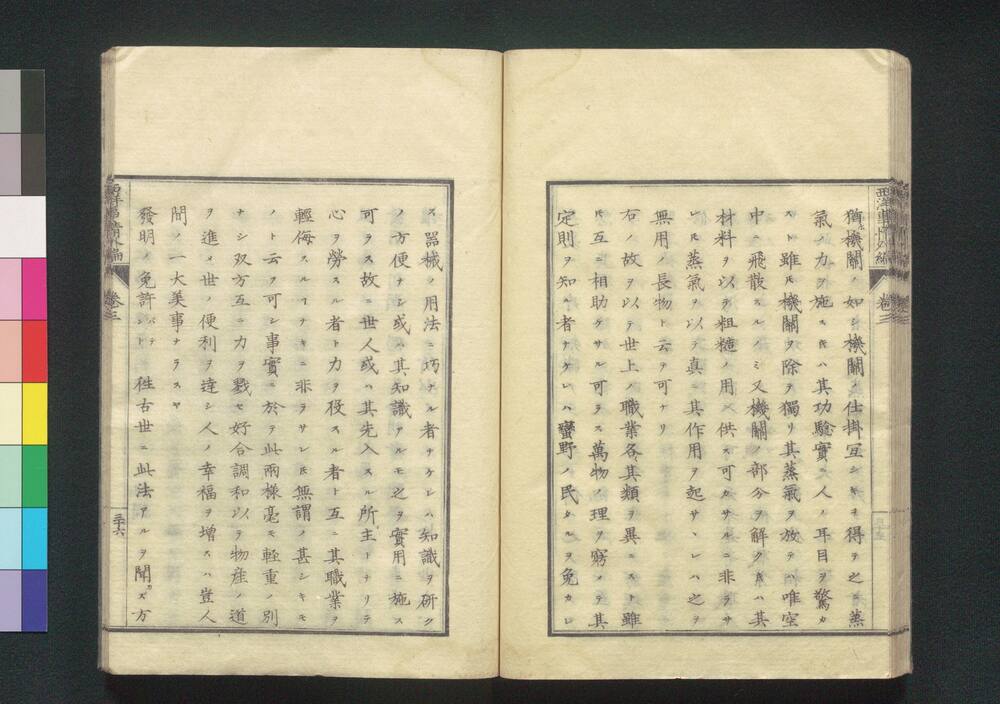 猶機關ノ如シ機關ノ仕掛宜シキヲ得テ之ニ蒸
氣ノ力ヲ施スキハ其功驗實ニ人ノ耳目ヲ驚カ
スト雖㒱機關ヲ除テ獨リ其蒸氣ヲ放テハ唯空
中ニ飛散スルノミ又機關ノ部分ヲ解クキハ其
材料ヲ以テ粗糙ノ用ニ供ス可カラサルニ非ラサ
レ㒱蒸氣ヲ以テ真ニ其作用ヲ起サヽレハ之ヲ
無用ノ長物ト云フ可ケリ
右ノ故ヲ以テ世上ノ職業各其類ヲ異ニスト雖
㒱互ニ相助ケサル可ラス萬物ノ理ヲ窮メテ其
定則ヲ知ル者ナケレハ蠻野ノ民タルヲ免カレ
ス器械ノ用法ニ巧ナル者ナケレハ知識ヲ研ク
ノ方便ナシ或ハ其知識アルモ之ヲ實用ニ施ス
可ラス故ニ世人或ハ其先入スル所主トナリテ
心ヲ勞スル者ト力ヲ役スル者ト互ニ其職業ヲ
輕侮スルヿナキニ非ラサレ㒱無謂ノ甚シキモ
ノト云フ可シ事實ニ於テ此兩樣毫モ輕重ノ別
ナシ双方互ニ力ヲ戮セ好合調和以テ物産ノ道
ヲ進メ世ノ便利ヲ達シ人ノ幸福ヲ增スハ豈人
間ノ一大美事ナラスヤ
發明ノ免許 パテント 往古世ニ此法アルヲ聞カズ方
西洋事情外編
卷三
三十六
西洋事情外編
卷三